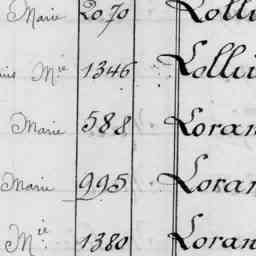 Marie 2070 Lolli
Mie 1346 Lolli
Marie 588 Loran
Marie 995 Loran
Mie 1380 Loran